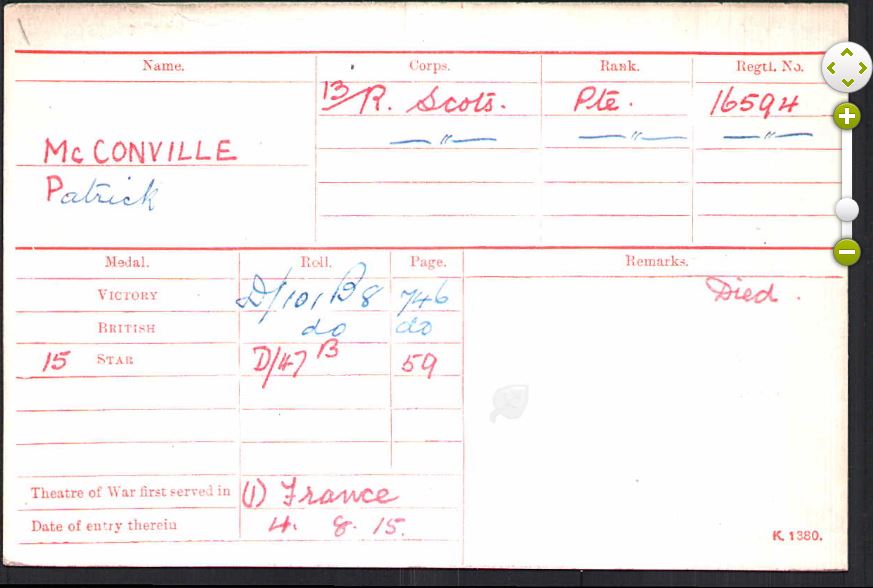 Name. Corps. Rank. Regtl. No.
13/R. Scots. Pte. 16594
—"— —"— —"—
McCONVILLE
Patrick
Medal. Roll. Page. Remarks.
VICTORY D/101 B8 746 Died.
BRITISH do do
15 STAR D/47 B 59
Theatre of War first served in (1) France
Date of entry therein 4. 8. 15.
K. 1380.